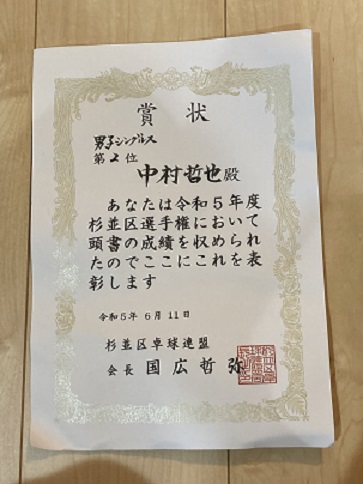 賞状
男子シングルス
第2位
中村哲也殿
あなたは令和5年度
杉並区選手権において
頭書の成績を収められ
たのでここにこれを表
彰します
令和5年6月11日
杉並区卓球連盟
会長 国広哲弥